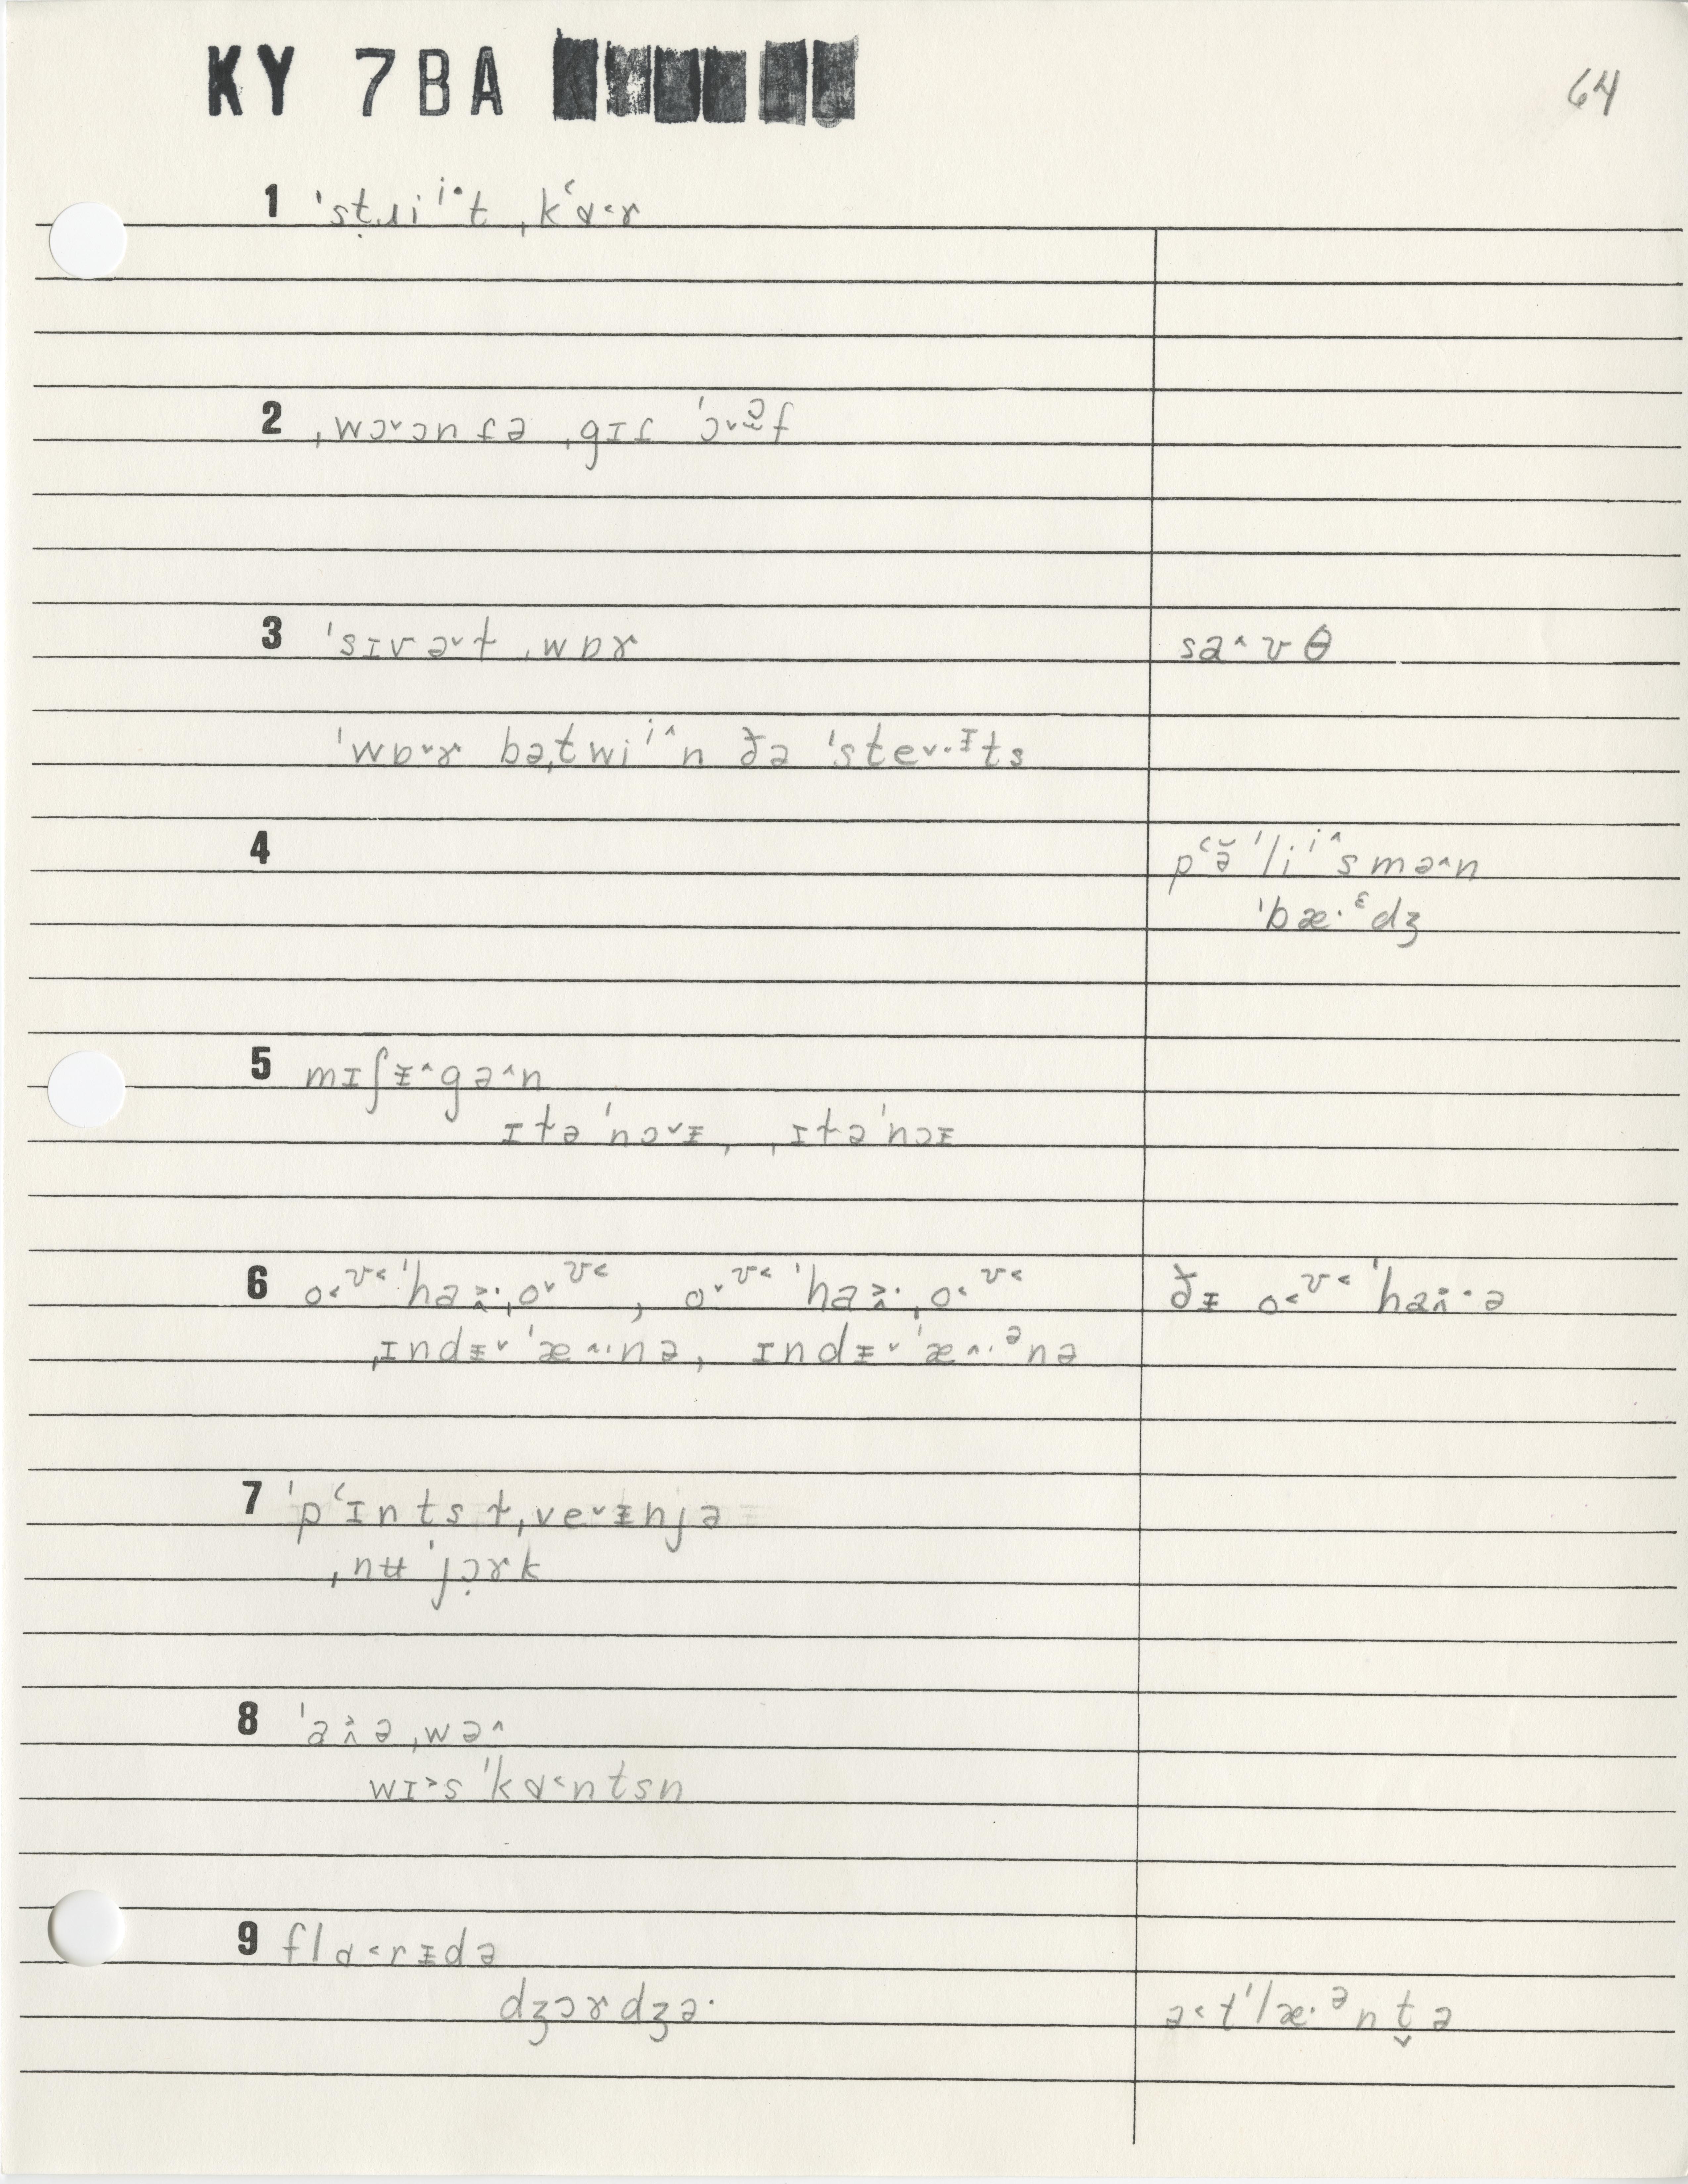 KY 7BA
64
1 ˈsṭɹiⁱ˙t ˌkʻɑ˂ɤ
2 ˌwɔ˅ɔn ɾə ˌgɪɾ
3 ˈsɪvə˅ɫ ˌwɒɤ saˆʊθ
ˈwɒ˅ɤ bəˌtwiⁱˆn ðə ˈste˅·ᵻts
4 pʻə̆ˈliⁱˆsməˆn
ˈbæ·ᵋdʒ
5 mɪʃᵻˆgəˆn
ɪɫəˈnɔ˅ᵻ, ˌɪɫəˈnɔᵻ
6 o˂ᶷ˂ˈha·ˌo˅ᶷ˂, o˅ᶷ˂ˈha·ˌo˂ᶷ˂ ðᵻ o˂ᶷ˂ˈha·ə
ˌɪndᵻ˅ˈæˆ·nə, ɪndᵻ˅ˈæˆ·ᵊnə
7 ˈpʻɪntsɫˌve˅ᵻnjə
ˌnʉ ˈjɔ̣ɤk
8 ˈaɪ̭ə ˌwəˆ
wɪ˃sˈkɑ˂ntsn
9 flɑ˂rᵻdə
dʒɔɤdʒə· ə˂tˈlæ·ᵊnt̬ə